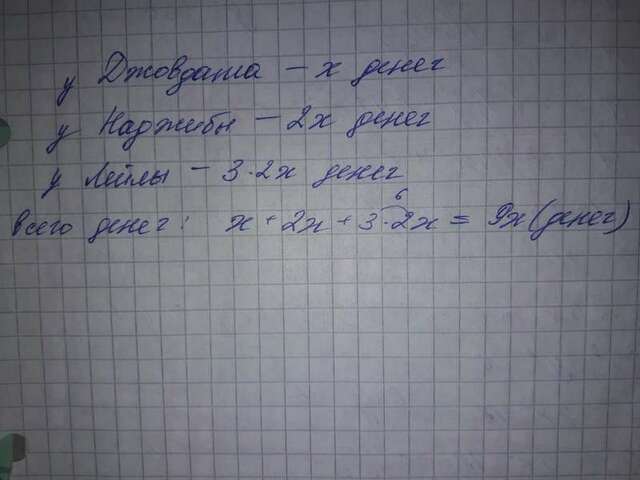 у Джовдата – x денег
у Наджибы – 2x денег
у Лейлы – 3·2x денег
6
всего денег: x + 2x + 3·2x = 9x (денег)